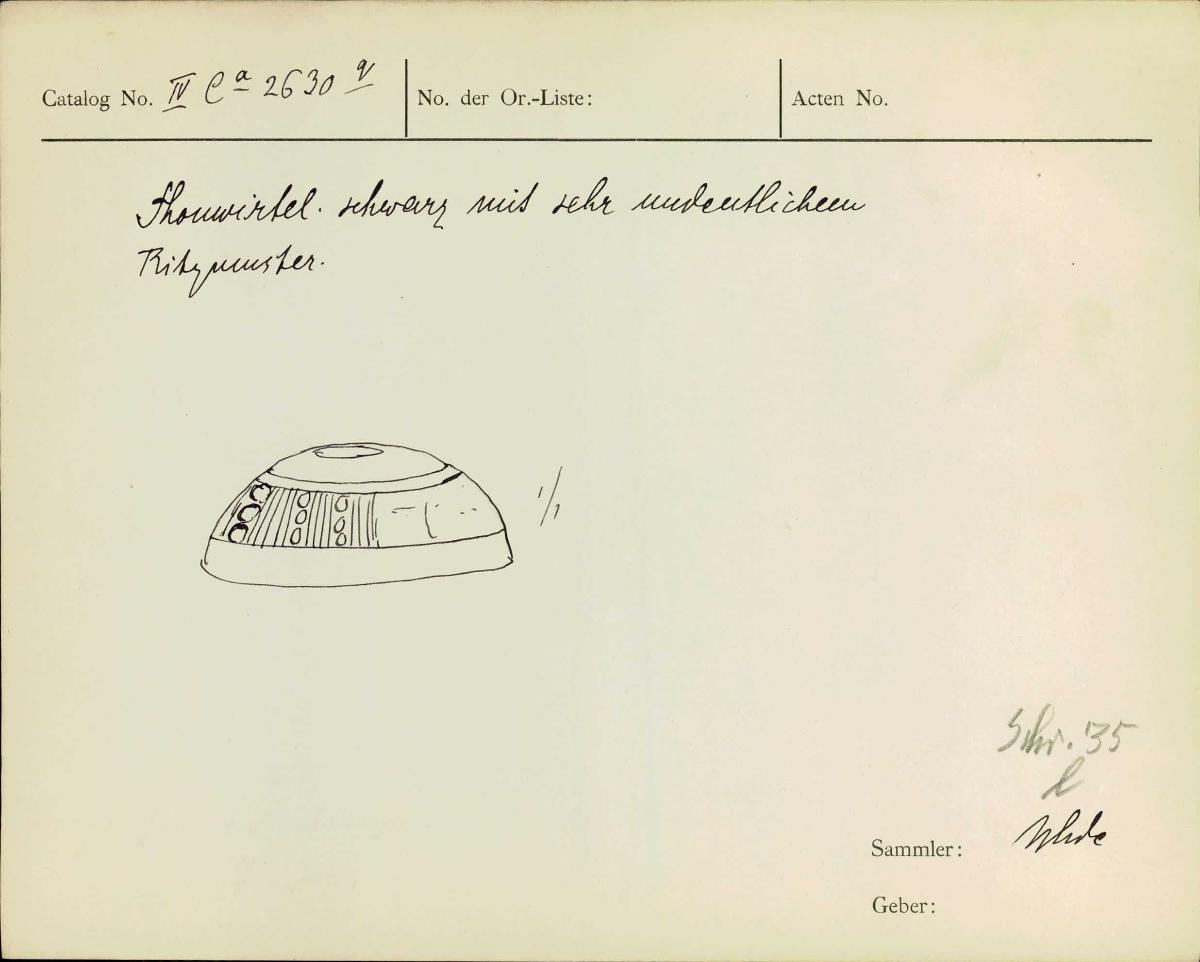 Catalog No. IV Ca 2630 q
No. der Or.-Liste:
Acten No.
Thonwirtel. schwarz mit sehr undeutlichem
Ritzmuster.
1/1
Schr. 35
l
Sammler: Uhde
Geber: